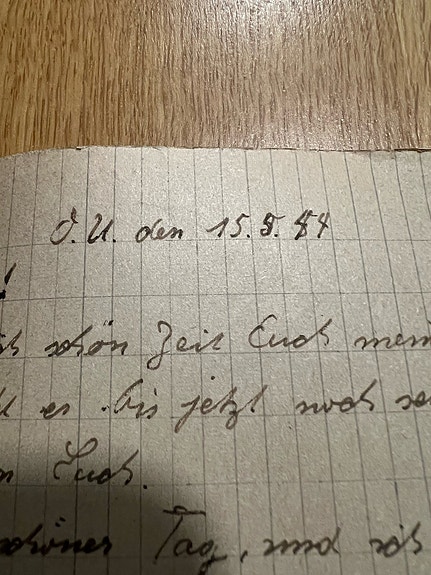 O.U. den 15.5.44
!
ich schön Zeit Euch mein
es bis jetzt noch
n Euch.
schöner Tag, und ich